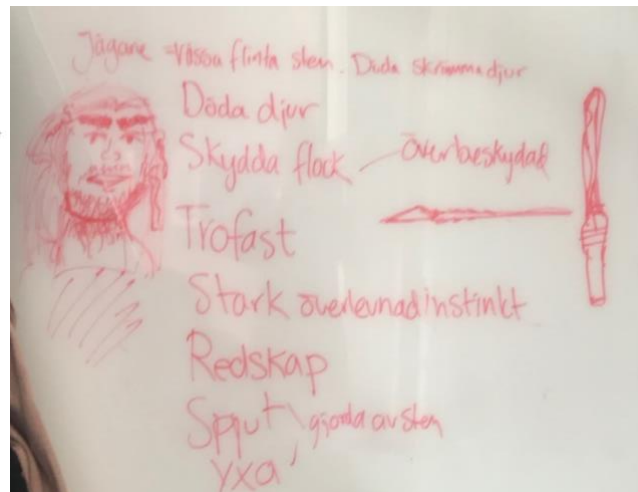 Jägare = Vässa flinta sten. Döda skrämma djur
Döda djur
Skydda flock – överbeskydad
Trofast
Stark överlevnadinstinkt
Redskap
Spjut \ gjorda av sten
yxa /